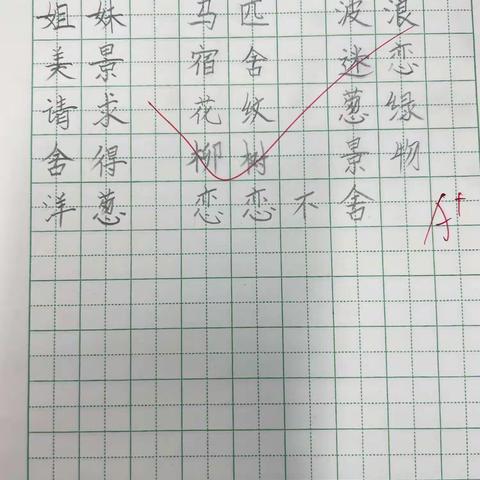 姐妹 马匹 波浪
美景 宿舍 迷恋
请求 花纹 葱绿
舍得 柳树 景物
洋葱 恋恋不舍
A+